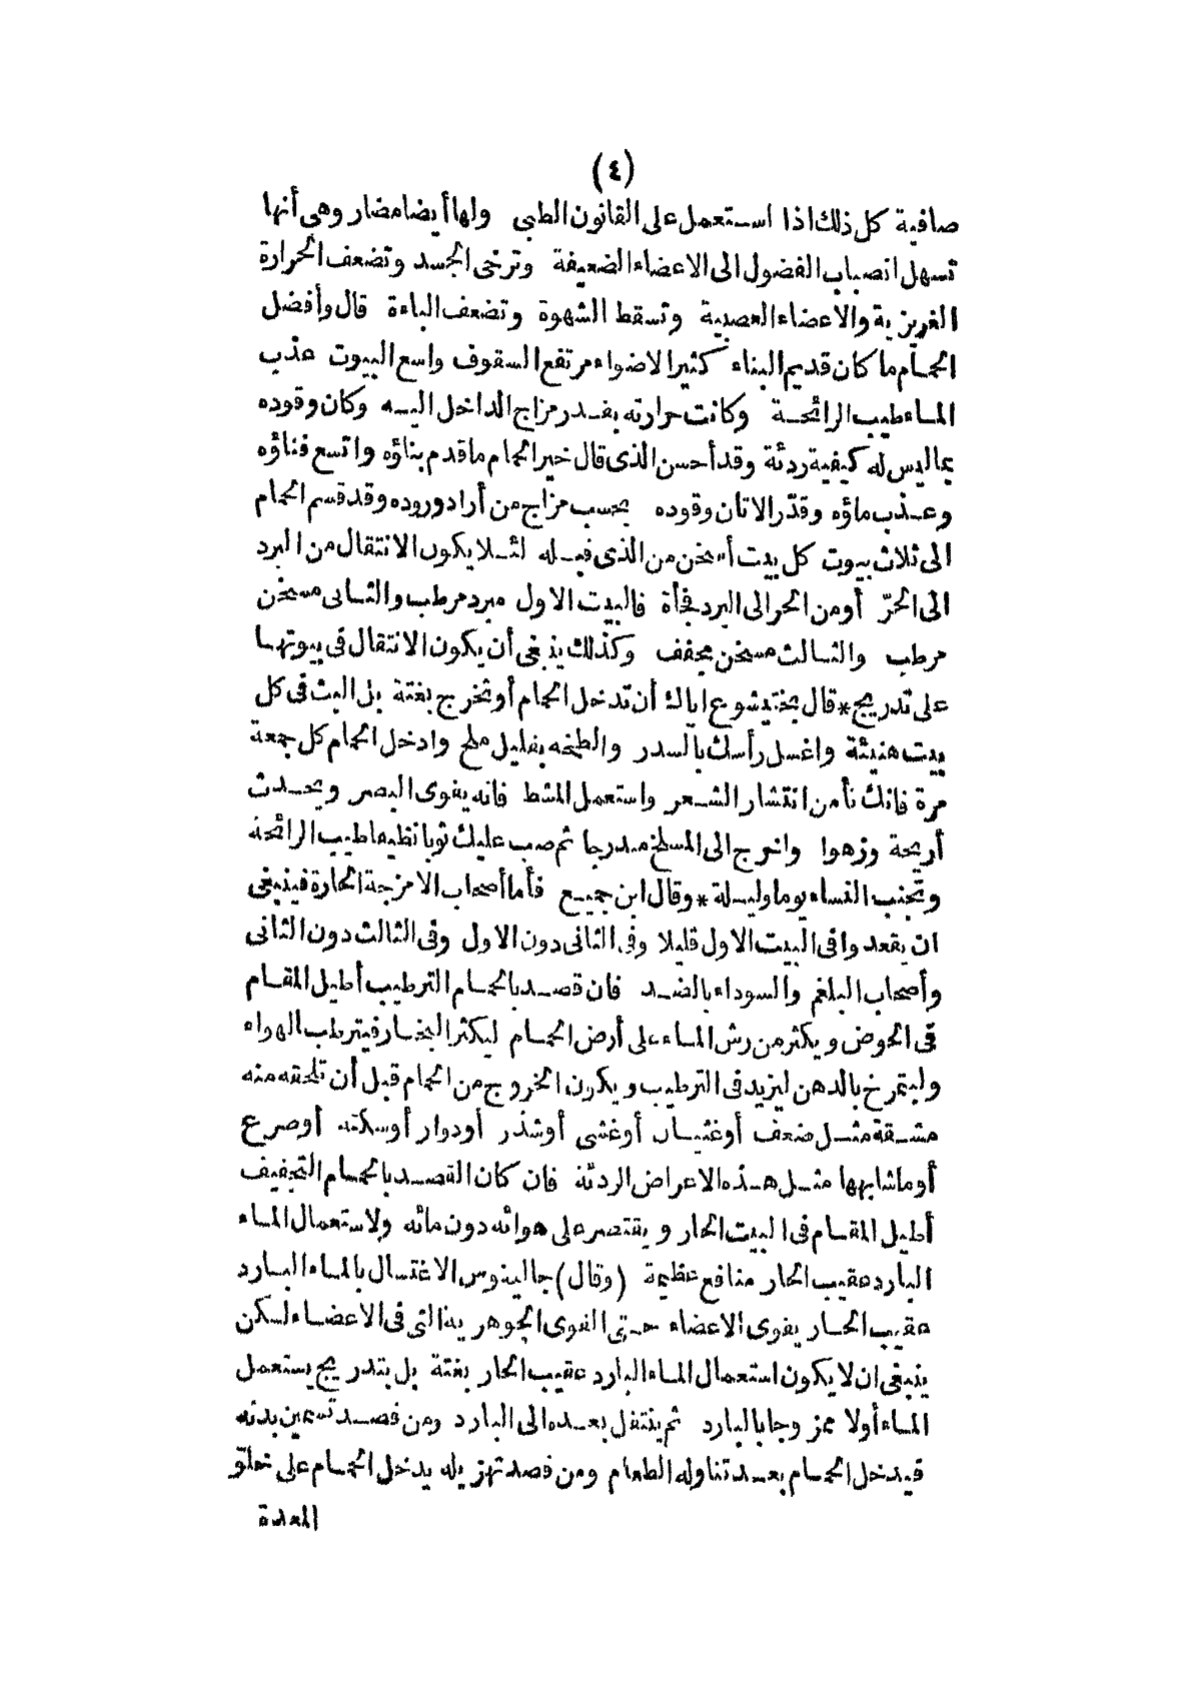 (٤)
صافية كل ذلك اذا استعمل على القانون الطبى ولها أيضا مضار وهى أنها
تسهل انصباب الفضول الى الاعضاء الضعيفة وترخى الجسد وتضعف الحرارة
الغريزية والاعضاء العصبية وتسقط الشهوة وتضعف الباءة قال وأفضل
الحمام ما كان قديم البناء كثير الاضواء مرتفع السقوف واسع البيوت عذب
الماء طيب الرائحة وكانت حرارته بقدر مزاج الداخل اليه وكان وقوده
بما ليس له كيفية ردئة وقد أحسن الذى قال خير الحمام ما قدم بناؤه واتسع فناؤه
وعذب ماؤه وقدّر الاتان وقوده بحسب مزاج من أراد وروده وقد قسم الحمام
الى ثلاث بيوت كل بيت أسخن من الذى قبله لئلا يكون الانتقال من البرد
الى الحرّ أو من الحر الى البرد فجأة فالبيت الاول مبرد مرطب والثانى مسخن
مرطب والثالث مسخن مجفف وكذلك ينبغى أن يكون الانتقال فى بيوتها
على تدريج * قال بختيشوع اياك أن تدخل الحمام أو تخرج بغتة بل البث فى كل
بيت هنيئة واغسل رأسك بالسدر والطخه بقليل ملح وادخل الحمام كل جمعة
مرة فانك تأمن انتشار الشعر واستعمل المشط فانه يقوى البصر ويحدث
أريحة وزهوا واخرج الى المسلخ مدرجا ثم صب عليك ثوبا نظيفا طيب الرائحة
وتجنب النساء يوما وليلة * وقال ابن جميع فأما أصحاب الامزجة الحارة فينبغى
ان يقعدوا فى البيت الاول قليلا وفى الثانى دون الاول وفى الثالث دون الثانى
وأصحاب البلغم والسوداء بالضد فان قصد بالحمام الترطيب أطيل المقام
فى الحوض ويكثر من رش الماء على أرض الحمام ليكثر البخار فيترطب الهواء
وليتمرخ بالدهن ليزيد فى الترطيب ويكون الخروج من الحمام قبل أن تلحقه منه
مشقة مثل ضعف أو غثيان أو غشى أو شذر أو دوار أو سكتة أو صرع
أو ما شابهها مثل هذه الاعراض الردئة فان كان القصد بالحمام التجفيف
أطيل المقام فى البيت الحار ويقتصر على هوائه دون مائه ولاستعمال الماء
البارد عقيب الحار منافع عظيمة (وقال) جالينوس الاغتسال بالماء البارد
عقيب الحار يقوى الاعضاء حتى القوى الجوهرية التى فى الاعضاء لكن
ينبغى ان لا يكون استعمال الماء البارد عقيب الحار بغتة بل بتدريج يستعمل
الماء أولا ممزوجا بالبارد ثم ينتقل بعده الى البارد ومن قصد تسمين بدنه
فيدخل الحمام بعد تناوله الطعام ومن قصد تهزيله يدخل الحمام على خلوّ
المعدة